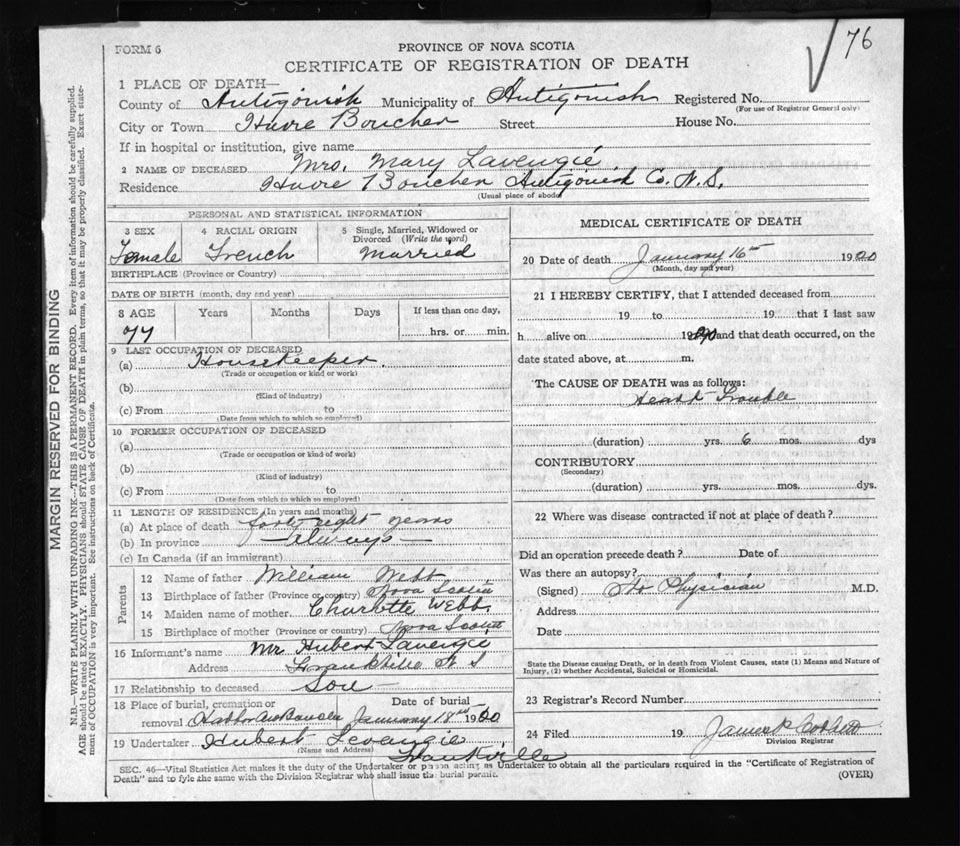 76
FORM 6
PROVINCE OF NOVA SCOTIA
CERTIFICATE OF REGISTRATION OF DEATH
1 PLACE OF DEATH—
County of Antigonish Municipality of Antigonish Registered No.
(For use of Registrar General only)
City or Town Havre Boucher Street House No.
If in hospital or institution, give name
2 NAME OF DECEASED Mrs. Mary Lavengie
Residence Havre Boucher Antigonish Co. N. S.
(Usual place of abode)
MARGIN RESERVED FOR BINDING
N.B.—WRITE PLAINLY WITH UNFADING INK—THIS IS A PERMANENT RECORD. Every item of information should be carefully supplied.
AGE should be stated EXACTLY. PHYSICIANS should STATE CAUSE OF DEATH in plain terms, so that it may be properly classified. Exact state-
ment of OCCUPATION is very important. See instructions on back of Certificate.
PERSONAL AND STATISTICAL INFORMATION
3 SEX 4 RACIAL ORIGIN 5 Single, Married, Widowed or
Divorced (Write the word)
Female French Married
BIRTHPLACE (Province or Country)
DATE OF BIRTH (month, day and year)
8 AGE Years Months Days If less than one day,
77 hrs. or min.
9 LAST OCCUPATION OF DECEASED
(a) Housekeeper
(Trade or occupation or kind or work)
(b)
(Kind of industry)
(c) From to
(Date from which to which so employed)
10 FORMER OCCUPATION OF DECEASED
(a)
(Trade or occupation or kind of work)
(b)
(Kind of industry)
(c) From to
(Date from which to which so employed)
11 LENGTH OF RESIDENCE (In years and months)
(a) At place of death forty eight years
(b) In province — always —
(c) In Canada (if an immigrant)
Parents
12 Name of father William Webb
13 Birthplace of father (Province or country) Nova Scotia
14 Maiden name of mother Charlotte Webb
15 Birthplace of mother (Province or country) Nova Scotia
16 Informant's name Mr Hubert Lavengie
Address Frankville N S
17 Relationship to deceased Son
18 Place of burial, cremation or Date of burial
removal January 18th 1920
19 Undertaker Hubert Levangie
(Name and Address)
Frankville
MEDICAL CERTIFICATE OF DEATH
20 Date of death January 16th 1920
(Month, day and year)
21 I HEREBY CERTIFY, that I attended deceased from
19 to 19 that I last saw
h alive on 19 and that death occurred, on the
date stated above, at m.
The CAUSE OF DEATH was as follows:
Heart Trouble
(duration) yrs. 6 mos. dys
CONTRIBUTORY
(Secondary)
(duration) yrs. mos. dys.
22 Where was disease contracted if not at place of death?
Did an operation precede death? Date of
Was there an autopsy?
(Signed) No Physician M.D.
Address
Date
State the Disease causing Death, or in death from Violent Causes, state (1) Means and Nature of
Injury, (2) whether Accidental, Suicidal or Homicidal.
23 Registrar's Record Number
24 Filed 19 James P. Corbett
Division Registrar
SEC. 46—Vital Statistics Act makes it the duty of the Undertaker or person acting as Undertaker to obtain all the particulars required in the "Certificate of Registration of
Death" and to fyle the same with the Division Registrar who shall issue the burial permit.
(OVER)